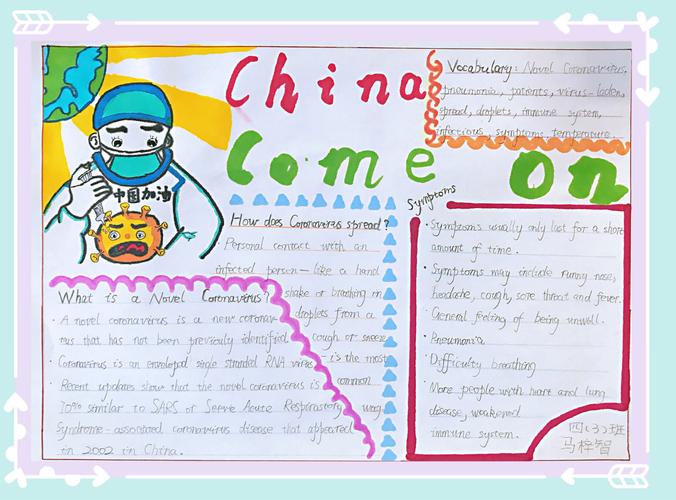 China
Come on
Vocabulary: Novel Coronavirus,
pneumonia, patients, virus-laden,
spread, droplets, immune system,
infectious, symptoms, temperature.
中国加油
How does Coronavirus spread?
Personal contact with an
infected person - like a hand
shake or breathing in
droplets from a
cough or sneeze
- is the most
common
way.
What is a Novel Coronavirus?
· A novel coronavirus is a new coronav-
rus that has not been previously identified.
· Coronavirus is an enveloped single stranded RNA virus
· Recent updates show that the novel coronavirus is
70% similar to SARS or Serve Acute Respirastory
Syndrome-associated coronavirus disease that appeared
in 2002 in China.
Symptoms
· Symptoms usually only last for a short
amount of time.
· Symptoms may include runny nose,
headache, cough, sore throat and fever.
· General feeling of being unwell.
· Pneumonia
· Difficulty breathing
· More people with heart and lung
disease, weakened
immune system.
四(3)班
马梓智